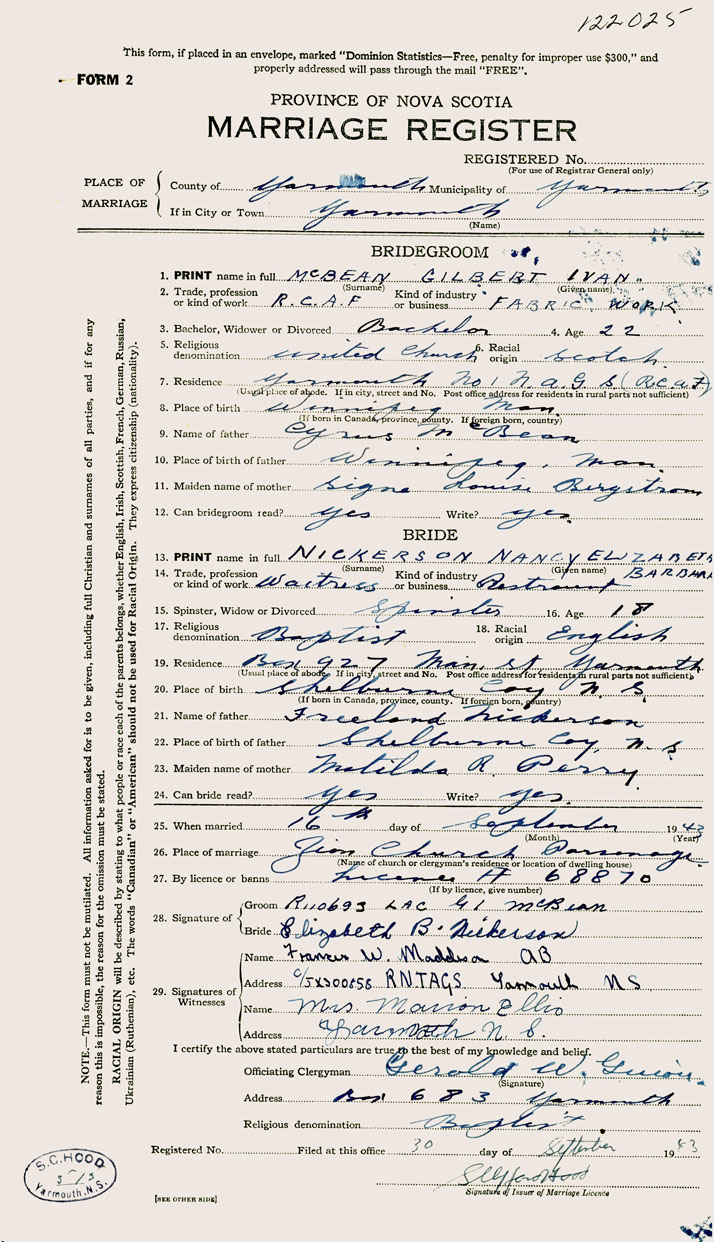 122025
This form, if placed in an envelope, marked “Dominion Statistics—Free, penalty for improper use $300,” and
properly addressed will pass through the mail “FREE”.
FORM 2
PROVINCE OF NOVA SCOTIA
MARRIAGE REGISTER
REGISTERED No.
(For use of Registrar General only)
PLACE OF MARRIAGE
County of Yarmouth Municipality of Yarmouth
If in City or Town Yarmouth
(Name)
BRIDEGROOM
1. PRINT name in full McBEAN GILBERT IVAN.
(Surname) (Given name)
2. Trade, profession or kind of work R.C.A.F Kind of industry or business FABRIC WORK
3. Bachelor, Widower or Divorced Bachelor 4. Age 22
5. Religious denomination United Church 6. Racial origin Scotch
7. Residence Yarmouth No 1 N.A.G.S (R.C.A.F)
(Usual place of abode. If in city, street and No. Post office address for residents in rural parts not sufficient)
8. Place of birth Winnipeg Man.
(If born in Canada, province, county. If foreign born, country)
9. Name of father Cyrus McBean
10. Place of birth of father Winnipeg, Man.
11. Maiden name of mother Signe Louise Bergstrom
12. Can bridegroom read? yes Write? yes.
BRIDE
13. PRINT name in full NICKERSON NANCY ELIZABETH
(Surname) (Given name) BARBARA
14. Trade, profession or kind of work Waitress Kind of industry or business Restraunt
15. Spinster, Widow or Divorced Spinster 16. Age 18
17. Religious denomination Baptist 18. Racial origin English
19. Residence Box 927 Main St Yarmouth
(Usual place of abode. If in city, street and No. Post office address for residents in rural parts not sufficient)
20. Place of birth Shelburne Coy N.S.
(If born in Canada, province, county. If foreign born, country)
21. Name of father Freeland Nickerson
22. Place of birth of father Shelburne Coy, N.S
23. Maiden name of mother Matilda R. Perry
24. Can bride read? yes Write? yes.
25. When married 16th day of September 1943
(Month) (Year)
26. Place of marriage Zion Church Parsonage
(Name of church or clergyman's residence or location of dwelling house)
27. By licence or banns Licence # 68870
(If by licence, give number)
28. Signature of
Groom R110693 LAC G.I. McBean
Bride Elizabeth B. Nickerson
29. Signatures of Witnesses
Name Frances W. Maddison AB
Address RNTAGS Yarmouth NS
Name Mrs. Marion Ellis
Address Yarmouth N.S.
I certify the above stated particulars are true to the best of my knowledge and belief.
Officiating Clergyman Gerald W. Guiou.
(Signature)
Address Box 683 Yarmouth
Religious denomination Baptist
Registered No. Filed at this office 30 day of September 1943
Signature of Issuer of Marriage Licence
[SEE OTHER SIDE]
S.C. HOOD
Yarmouth, N.S.
NOTE.—This form must not be mutilated. All information asked for is to be given, including full Christian and surnames of all parties, and if for any
reason this is impossible, the reason for the omission must be stated.
RACIAL ORIGIN will be described by stating to what people or race each of the parents belongs, whether English, Irish, Scottish, French, German, Russian,
Ukrainian (Ruthenian), etc. The words “Canadian” or “American” should not be used for Racial Origin. They express citizenship (nationality).